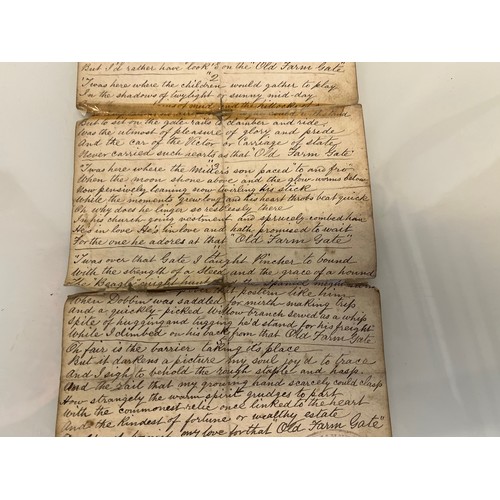 But I'd rather have "look'd on the "Old Farm Gate"
"2
'Twas here where the children would gather to play
In the shadows of twylight or sunny mid-day
But to sit on the gate rails to clamber and ride
Was the utmost of pleasure of glory and pride
And the car of the Victor or Carriage of state
Never carried such hearts as that "Old Farm Gate"
'Twas here where the Miller's son paced to and fro
When the moon shone above and the glow worms below
Now pensively leaning now twirling his stick
While the moments grew long and his heart throbs beat quick
Oh why does he linger so restlessly there
In his church going vestment and sprucely combed hair
He's in love He's in love and hath promised to wait
For the one he adores at that "Old Farm Gate"
'Twas over that Gate I taught Pincher to bound
With the strength of a Steed and the grace of a hound
The Beagle might hunt the Spaniel might swim
postern like him
When Dobbin was saddled for mirth-making trips
and a quickly-picked Willow branch served as a whip
Spite of hugging and tugging he'd stand for his freight
While I climbed on his back from that Old Farm Gate
Oh fair is the barrier taking its place
But it darkens a picture my soul joy'd to trace
And I sigh to behold the rough staple and hasp
And the rail that my growing hand scarcely could clasp
How strangely the warm-spirit grudges to part
With the commonest relic once linked to the heart
And the kindest of fortune or wealthy estate
my love for that "Old Farm Gate"